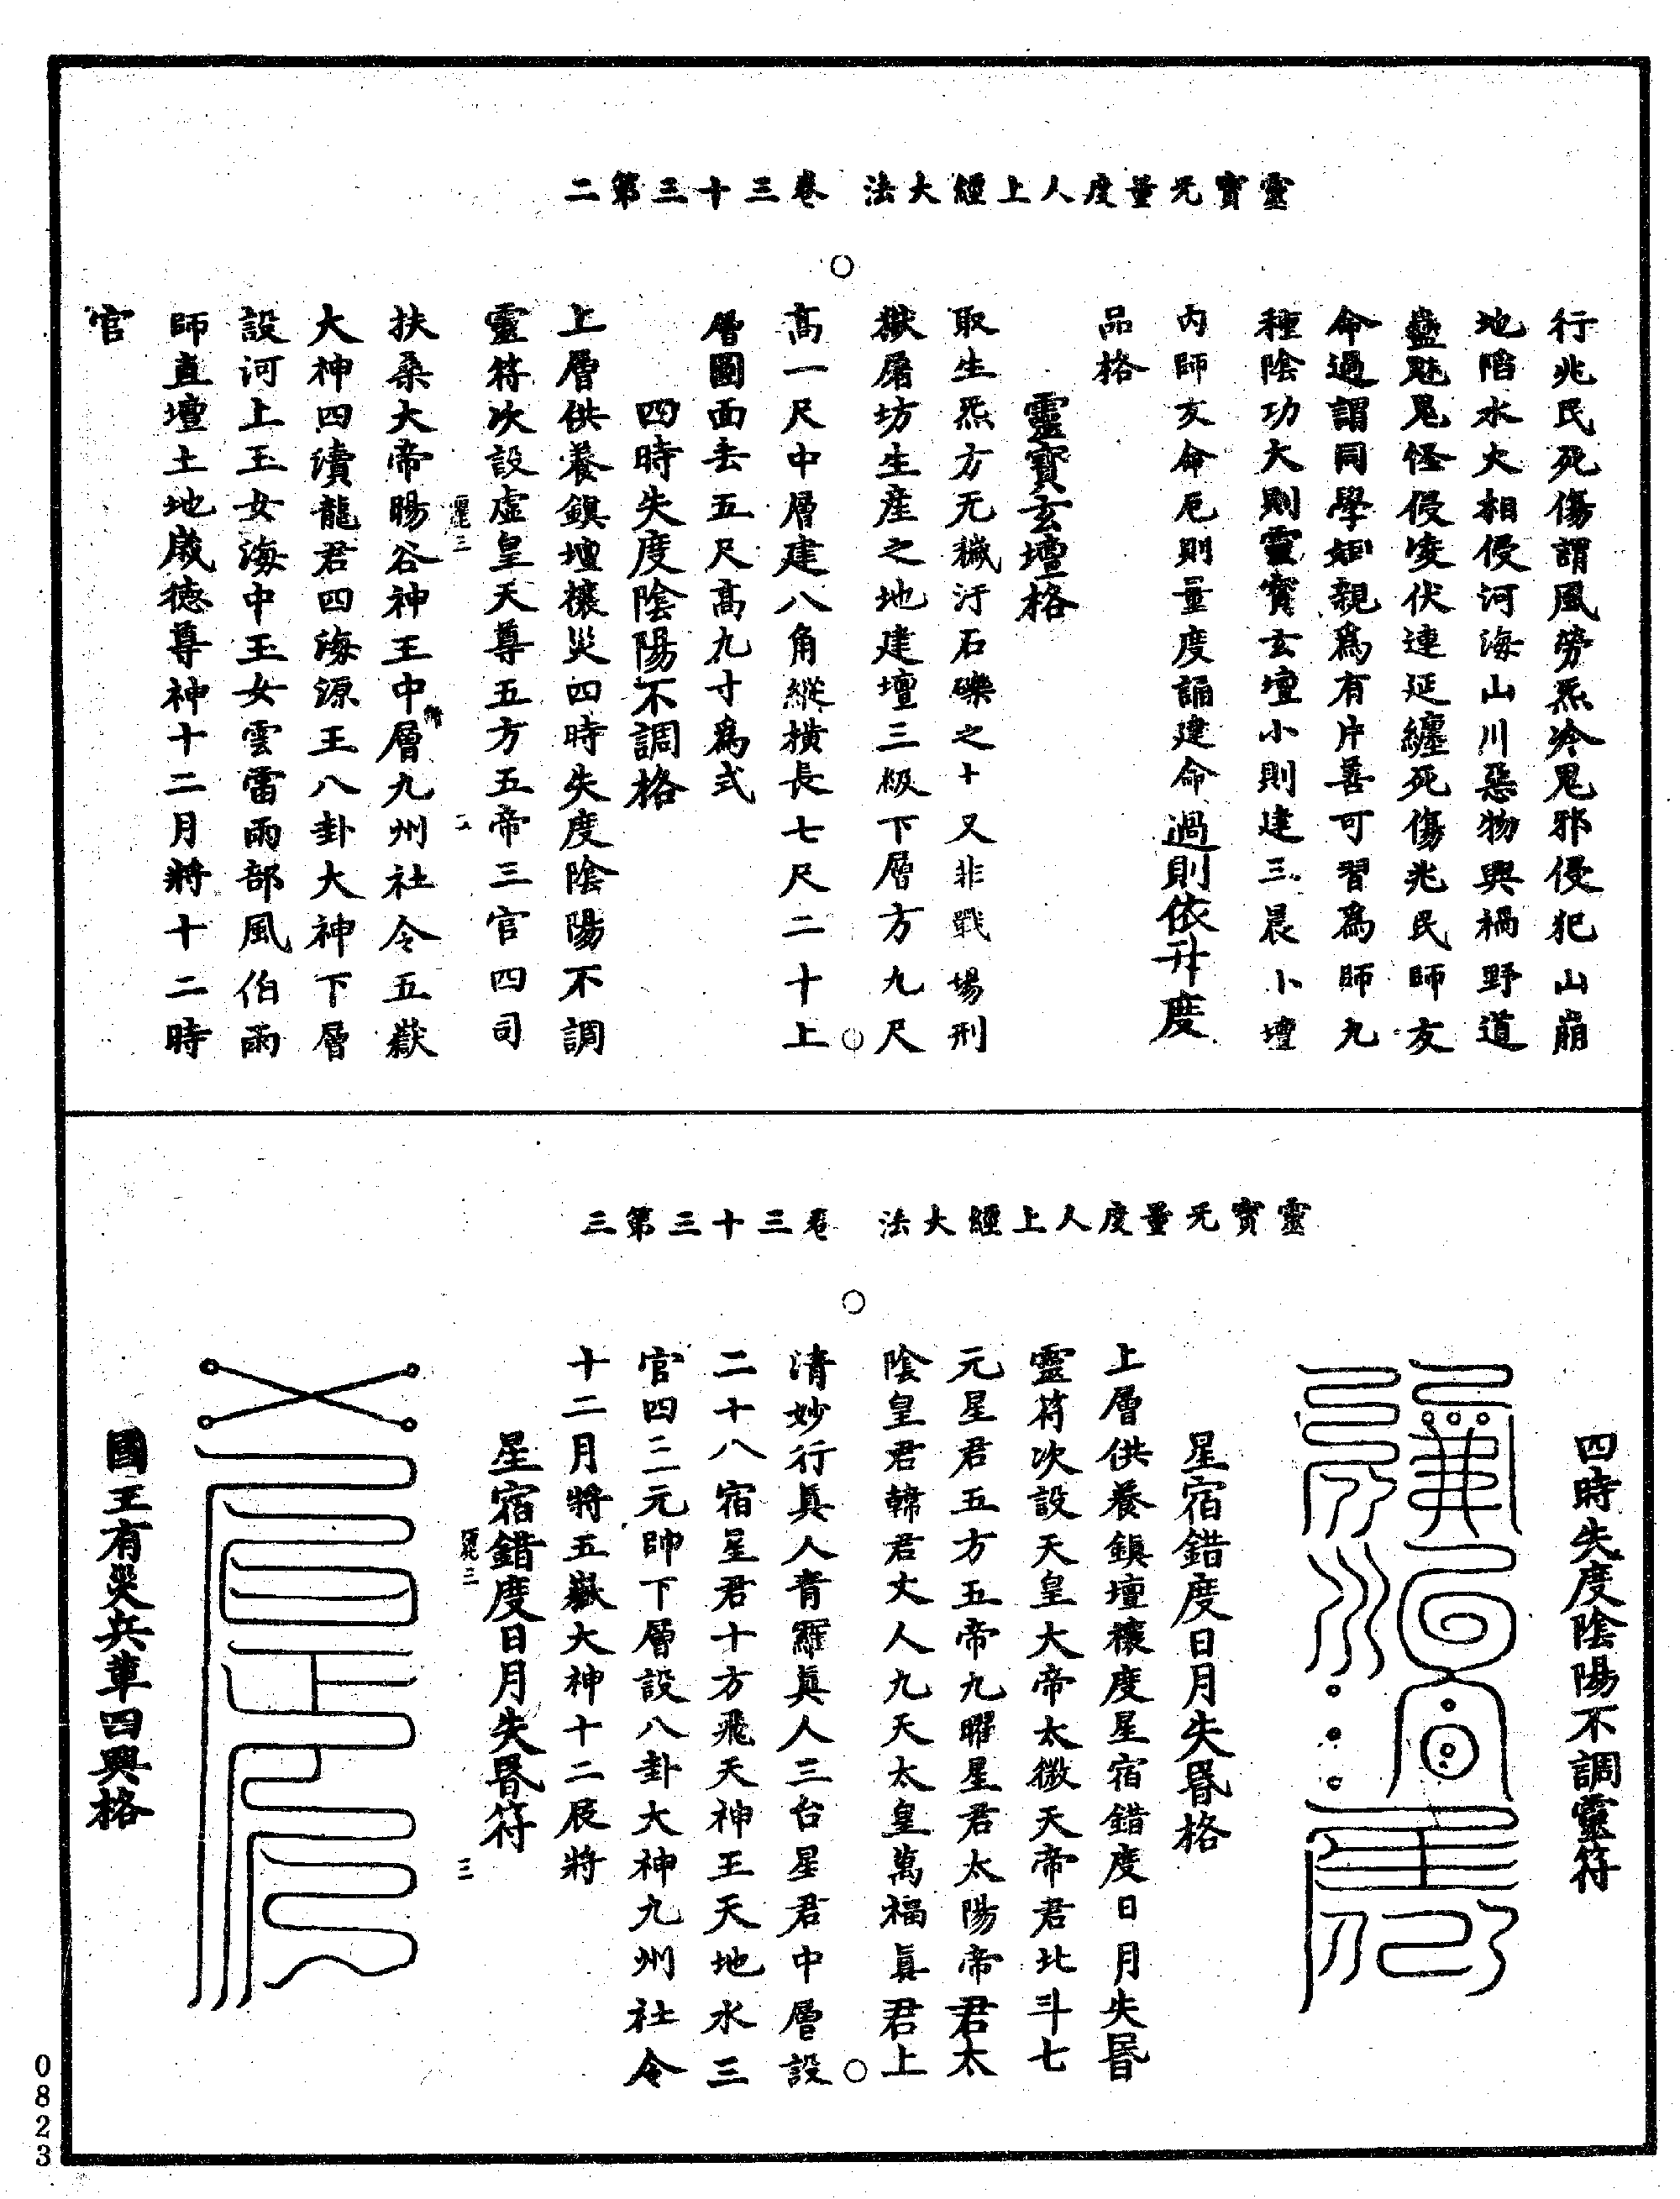 靈寶无量度人上經大法 卷三十三第二
行兆民死傷謂風勞炁冷鬼邪侵犯山崩
地陷水火相侵河海山川惡物興禍野道
蠱魅鬼怪侵凌伏連延纏死傷兆民師友
命過謂同學姻親爲有片善可習爲師九
種陰功大則靈寶玄壇小則建三晨小壇
內師友命厄則量度誦建命過則依升度
品格
靈寶玄壇格
取生炁方无穢汙石礫之十又非戰場刑
獄屠坊生産之地建壇三級下層方九尺
高一尺中層建八角縱橫長七尺二十上
層圓面去五尺高九寸爲式
四時失度陰陽不調格
上層供養鎮壇禳災四時失度陰陽不調
靈符次設虛皇天尊五方五帝三官四司
二
扶桑大帝暘谷神王中層九州社令五嶽
大神四瀆龍君四海源王八卦大神下層
設河上玉女海中玉女雲雷雨部風伯雨
師直壇土地歲德尊神十二月將十二時
官
靈寶无量度人上經大法 卷三十三第三
四時失度陰陽不調靈符
星宿錯度日月失昬格
上層供養鎮壇禳度星宿錯度日月失昬
靈符次設天皇大帝太微天帝君北斗七
元星君五方五帝九曜星君太陽帝君太
陰皇君韓君丈人九天太皇萬福眞君上
清妙行眞人青羅眞人三台星君中層設
二十八宿星君十方飛天神王天地水三
官四三元帥下層設八卦大神九州社令
十二月將五嶽大神十二辰將
星宿錯度日月失昬符
三
國王有災兵革四興格
0823